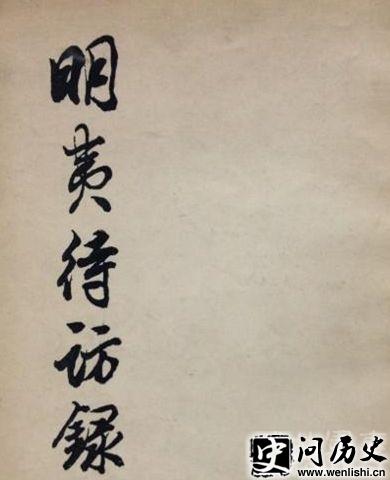 明夷待訪録
史问历史
www.wenlishi.cn